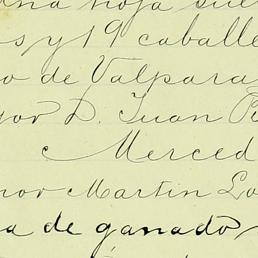 una hoja sue
os y 19 caballe
o de Valpara
yor D. Juan
Merced
nor Martin Lo
a de ganado